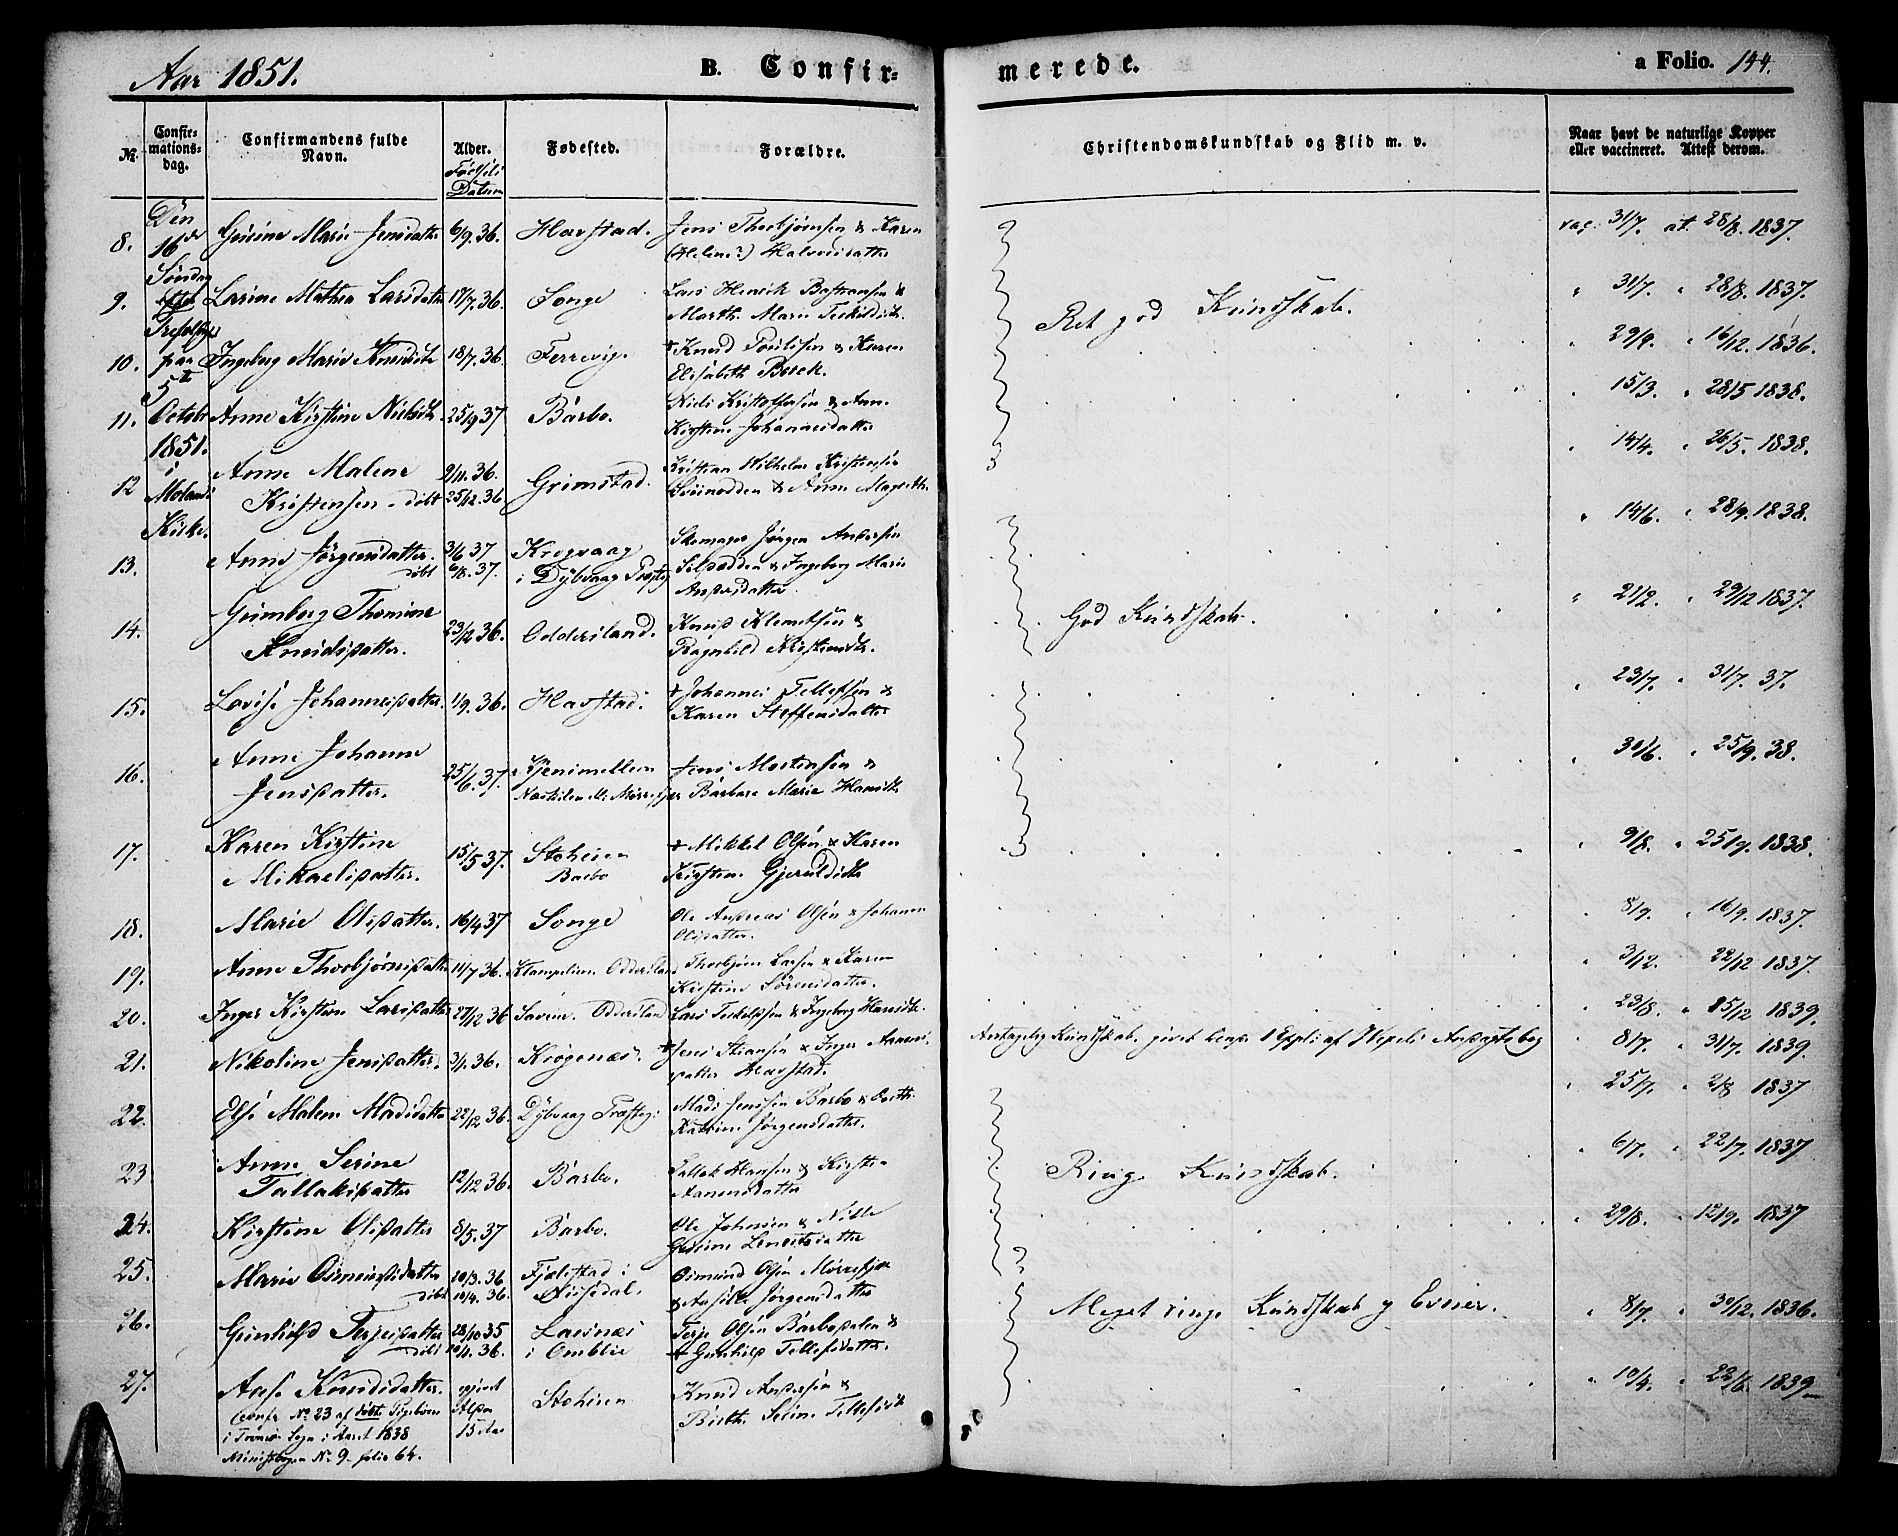 Aar 1851.
B. Confirmerede.
a Folio. 144.
№
Confirmationsdag.
Confirmandens fulde Navn.
Alder. Fødsels Datum
Fødested.
Forældre.
Christendomskundskab og Flid m. v.
Naar havt de naturlige Kopper eller vaccineret. Attest derom.
Den 16de Søndag efter Trefoldigh paa 5te Octobr 1851. i Molands Kirke.
8. Gusine Marie Jensdatter 6/9 36. Havstad. Jens Thorbjørnsen & Karen (Helene?) Halvorsdatter vac. 31/7. at. 28/8. 1837.
9. Larine Mathea Larsdatter 17/7 36. Songe Lars Henrik Bastiansen & Marth. Marie Terkildsdtr. Ret god Kundskab. " 31/7. " 28/8. 1837.
10. Ingeborg Marie Knudsdtr 18/7 36. Ferrevig. + Knud Poulsen & Karen Elisabeth Birck. " 29/9. " 16/12. 1836.
11. Anne Kirstine Nielsdtr. 25/9 37. Barbo. Niels Kristoffersen & Ann. Kirstine Johannesdatter " 15/3. " 28/5 1838.
12 Anne Malene Kristensen. døbt 9/11. 36. 25/12. 36. Grimstad. Kristian Wilhelm Kristensen & Anne Magrethe " 14/4. " 26/5. 1838.
13. Anne Jørgensdatter. døbt 3/6 37 6/8. 37. Krogvaag i Dybvaag Præsteg Skomager Jørgen Andersen & Ingeborg Marie Andersdatter. " 14/6. " 28/9. 1838.
14. Gunnborg Thomine Knudsdatter. 23/12 36. Oddersland. Knud Klemetsen & Ragnhild Kristensdtr. God Kundskab. " 21/2. " 29/12 1837.
15. Lovise Johannesdatter. 1/9. 36. Havstad. + Johannes Tellefsen & Karen Steffensdatter " 23/7. " 31/7. 37.
16. Anne Johanne Jensdatter. 25/6. 37. Jens Mortensen & Barbara Marie Hansdtr " 30/6. " 25/9. 38.
17. Karen Kirstine Mikaelsdatter. 15/5 37. Stoheien Barbo + Mikkel Olsen & Karen Kirstine Gjeruldsdtr " 9/8. " 25/9. 1838.
18. Marie Olsdatter. 16/4 37 Songe Ole Andreas Olsen & Johanne Olsdatter. " 8/9. " 16/9. 1837.
19. Anne Thorbjørnsdatter 14/7 36. Oddersland Thorbjørn Larsen & Karen Kirstine Sørensdatter. " 3/12. " 22/12 1837.
20. Inger Kirstine Larsdatter 27/12 36 Oddersland Lars Terkelsen & Ingeborg Hansdtr. " 23/8. " 15/12 1839.
21. Nikoline Jensdatter. 3/1. 36. Krøgenæs. Jens Stiansen & Inger Aanonsdatter Havstad. Antagelig Kundskab. givet Expl. af Andagtsbog " 8/7. " 31/7. 1839.
22. Else Malene Madsdatter 22/12 36. Dybvaag Præsteg: Mads Jenssen Barbo & Katrine Jørgensdatter. " 25/7. " 2/8 1837
23 Anne Serine Tallaksdatter 12/12 36. Barbo. Tallak Hansen & Kirstine Aanensdatter Ring. Kundskab. " 6/7. " 22/7. 1837
24. Kirstine Olsdatter 8/5. 37 Barbo. Ole Johnsen & Nille " 29/8. " 12/9. 1837
25. Marie Osmundsdatter døbt 20/3. 36 10/4. 36. Fjelstad i Osmund Olsen & Jørgensdatter Meget ringe Kundskab og Evner. " 8/7. " 30/12. 1836.
26. Gunhild Terjesdatter døbt 28/10 35 Lasnæs i Omblie Terje Olsen Barbodalen & + Gunhild Tellefsdatter. " 10/4. " 22/6. 1839
27. Aase Knudsdatter. Confr No 23 af døbte Pigebørn i Tromø Sogn i Aaret 1838 Ministbogen No 9. folio 64. Alder 15 Aar Stoheien Knud Andersen & Berthe Seline Tellefsdtr